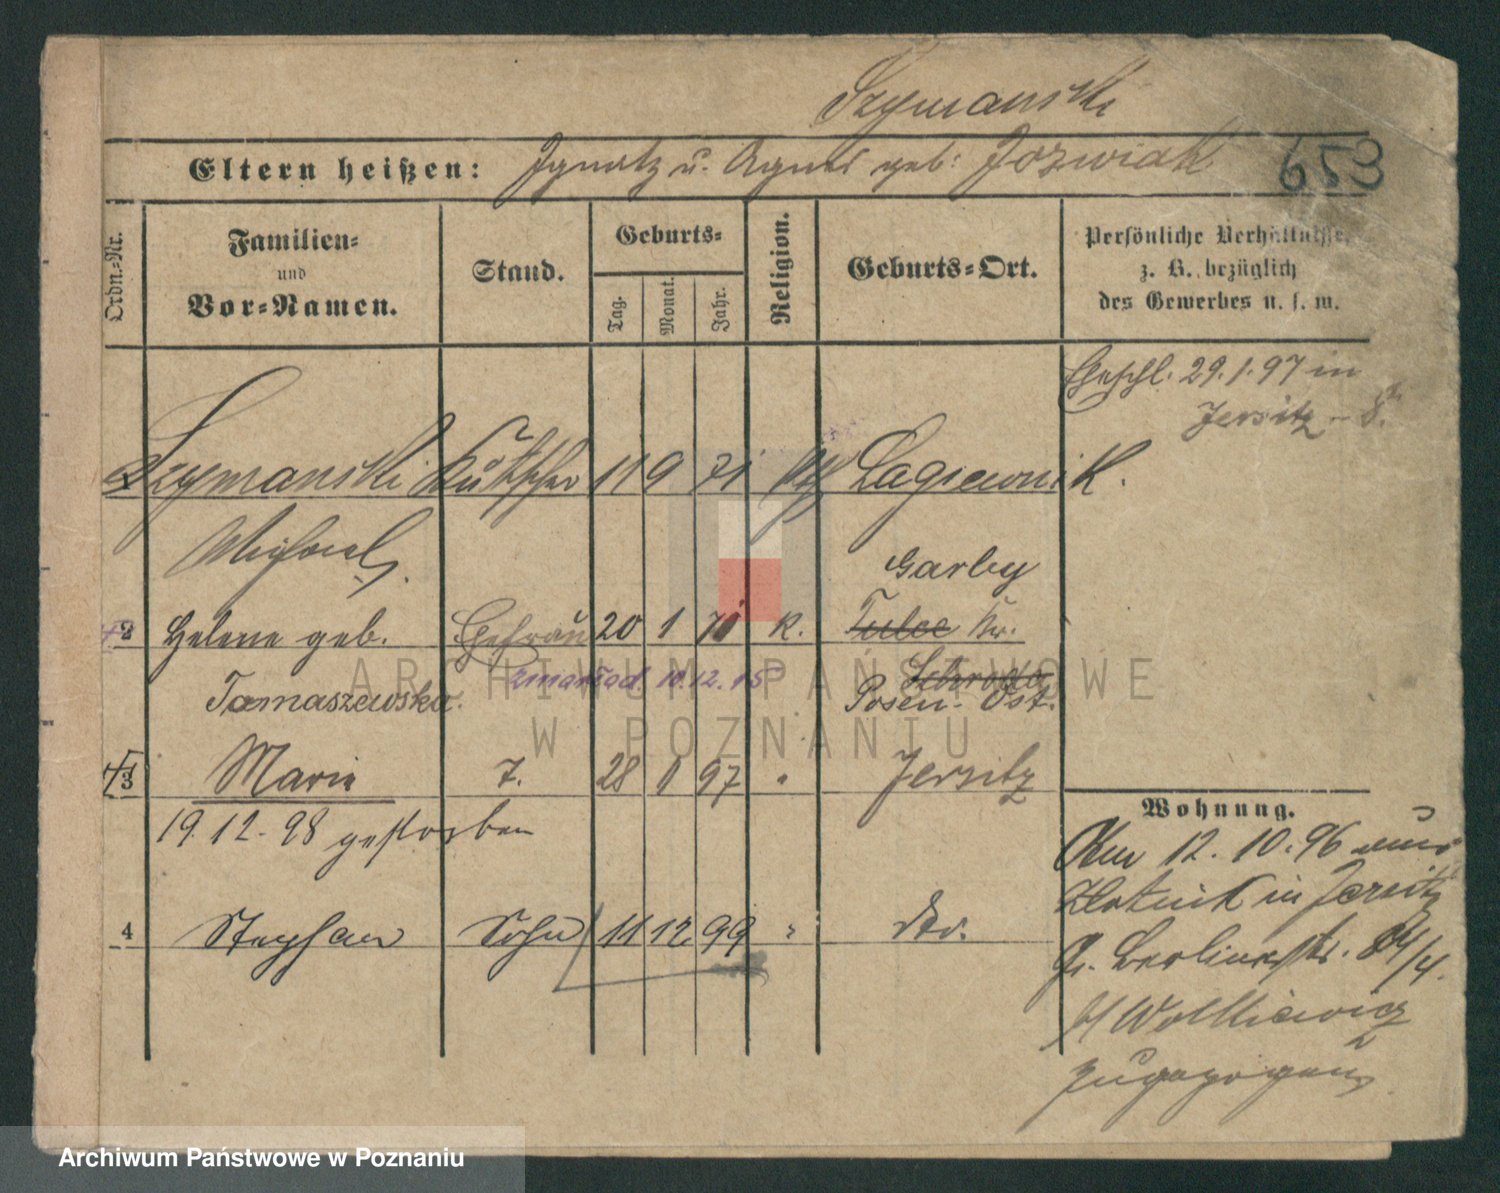 Szymanski
Eltern heißen: Ignatz u. Agnes geb: Jozwiak 653
Ordn.-Nr.
Familien-
und
Vor-Namen.
Stand.
Geburts-
Tag.
Monat.
Jahr.
Religion.
Geburts-Ort.
Persönliche Verhältnisse,
z. B. bezüglich
des Gewerbes u. s. w.
Eheschl. 29.1.97 in
Jersitz
Szymanski Kutscher 11 9 71 Lagiewnik.
Michael
Garby
2 Helene geb. Ehefrau 20 1 71 K. Tulce Kr.
Schroda
Tomaszewska. 10.12.15 Posen-Ost.
3 Marie T. 28 1 97 " Jersitz
19.12.98 gestorben
4 Stephan Sohn 11 12 99 " dto.
Wohnung.
Am 12.10.96 aus
Zlotnik in Jersitz
Gr. Berlinerstr. 84/4.
b/ Wolkiewicz
zugezogen
ARCHIWUM PAŃSTWOWE
W POZNANIU
Archiwum Państwowe w Poznaniu